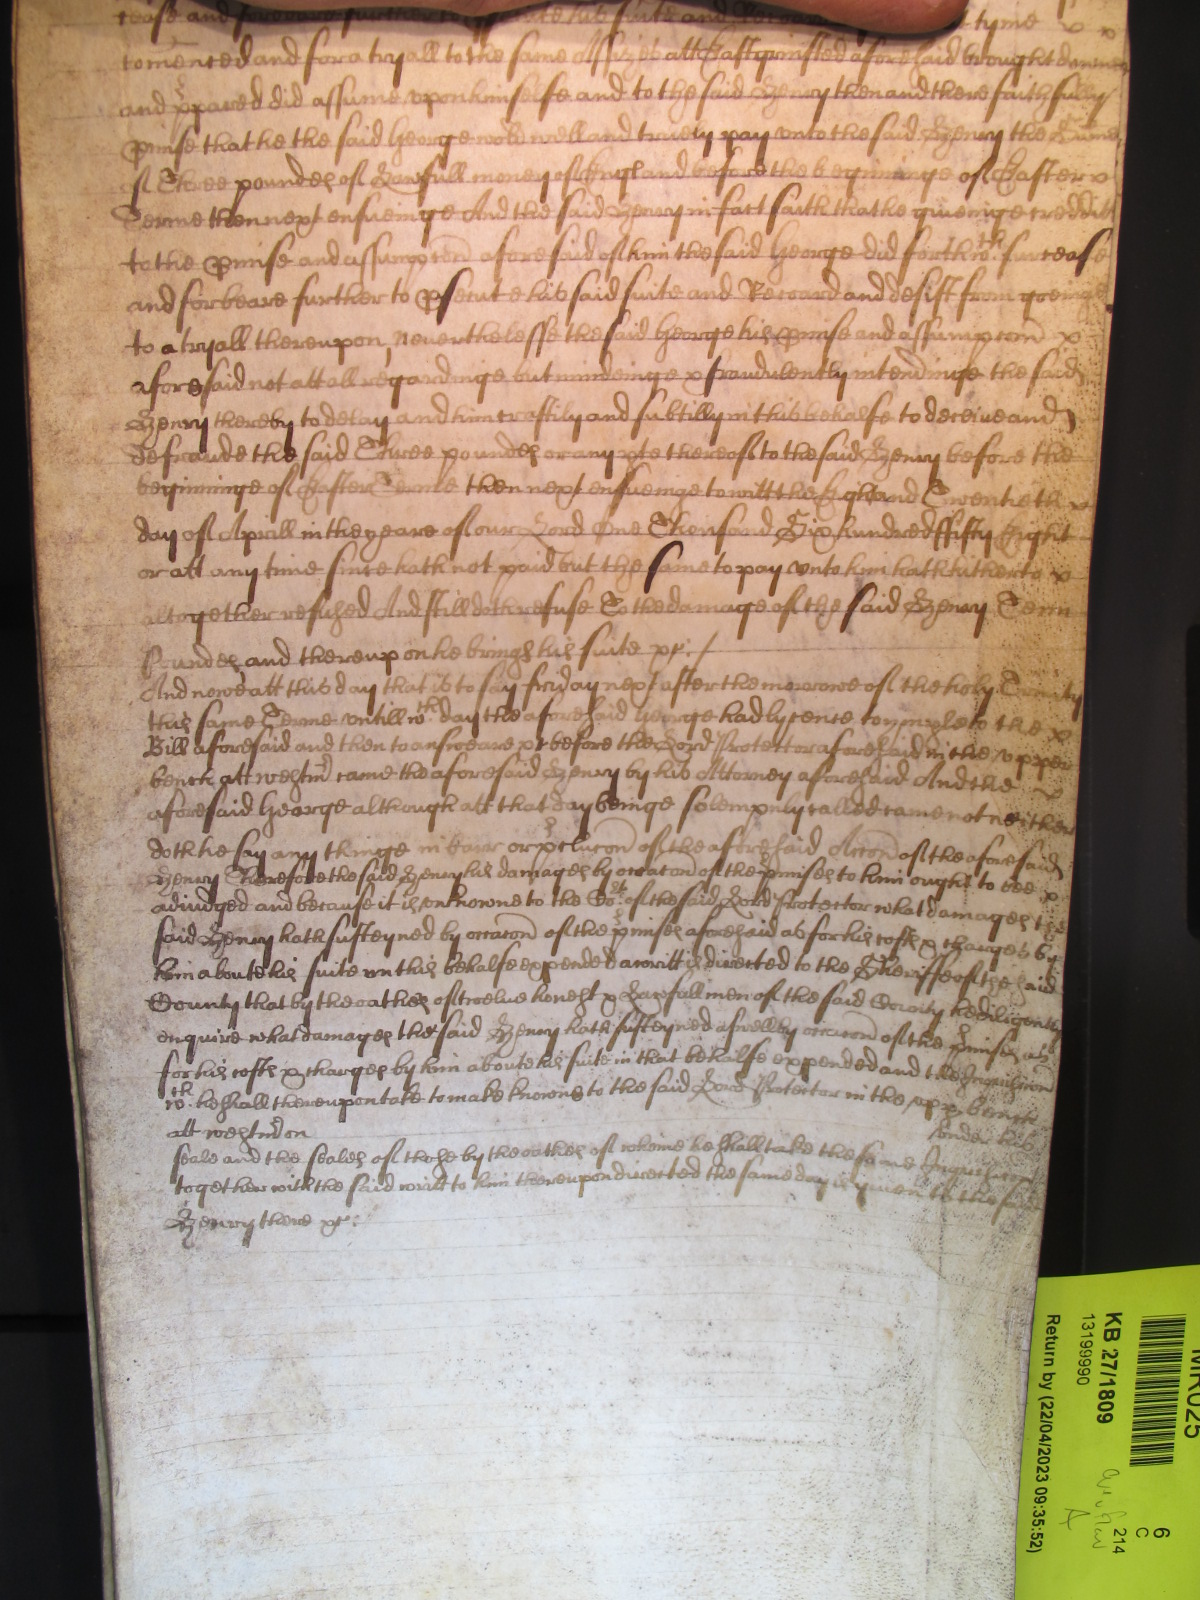 cease and forbeare further to psecute his suite and Record tyme x x
comenced and for a tryall to the same Assizes att Eastgrinsted aforesaid brought downe
and ppared did assume vpon himselfe and to the said Henry then and there faithfully
pmise that he the said George wold well and truely pay vnto the said Henry the Sume
of Three poundes of Lawfull money of England before the beginninge of Easter x
Terme then next ensueinge And the said Henry in fact saith that he giueinge creditt
to the pmise and assumpcon aforesaid of him the said George did forthwth surcease
and forbeare further to psecute his said suite and Record and desist from goeinge
to a tryall thereupon, Neverthelesse the said George his pmise and assumpcon x
aforesaid not att all regardinge but mindeinge x fraudulently intendinge the said
Henry thereby to delay and him craftily and subtilly in this behalfe to deceive and
defraude the said Three poundes or any pte thereof to the said Henry before the
beginninge of Easter Terme then next ensueinge to witt the Eight and Twentieth x
day of Aprill in the yeare of our Lord One Thousand Six hundred ffifty Eight
or att any time since hath not paid but the same to pay vnto him hath hitherto x
altogether refused And still doth refuse To the damage of the said Henry Tenn
poundes and thereupon he brings his suite xc: /
And nowe att this day that is to say friday next after the morrowe of the holy Trinity
this same Terme vntill wch day the aforesaid George had lycence to imparle to the x
Bill aforesaid and then to answeare xc before the Lord Protector aforesaid in the vpper
bench att westmr came the aforesaid Henry by his Attorney aforesaid And the x
aforesaid George although att that day beinge solempnly called came not neither
doth he say any thinge in barr or pclucon of the aforesaid Accon of the aforesaid
Henry Therefore the said Henry his damages by occacon of the pmises to him ought to bee x
adiudged and because it is vnknowne to the Cort of the said Lord Protector what damages the
said Henry hath susteyned by occacon of the pmises aforesaid as for his costs x charges by
him about his suite in this behalfe expended a writt is directed to the Sheriffe of the said
County that by the oathes of twelve honest x Lawfull men of the said County he diligently
enquire what damages the said Henry hath susteyned aswell by occacon of the pmises as
for his costs x charges by him about his suite in that behalfe expended and the Inquisicon
wch he shall thereupon take to make knowne to the said Lord Protector in the vpp bench
att westmr on vnder his
seale and the seales of those by the oathes of whome he shall take the same Inquisicon
together with the said writt to him thereupon directed the same day is given to the said
Henry there xc:
MR025
KB 27/1809
13199990
Return by (22/04/2023 09:35:52)
6
C
214
A